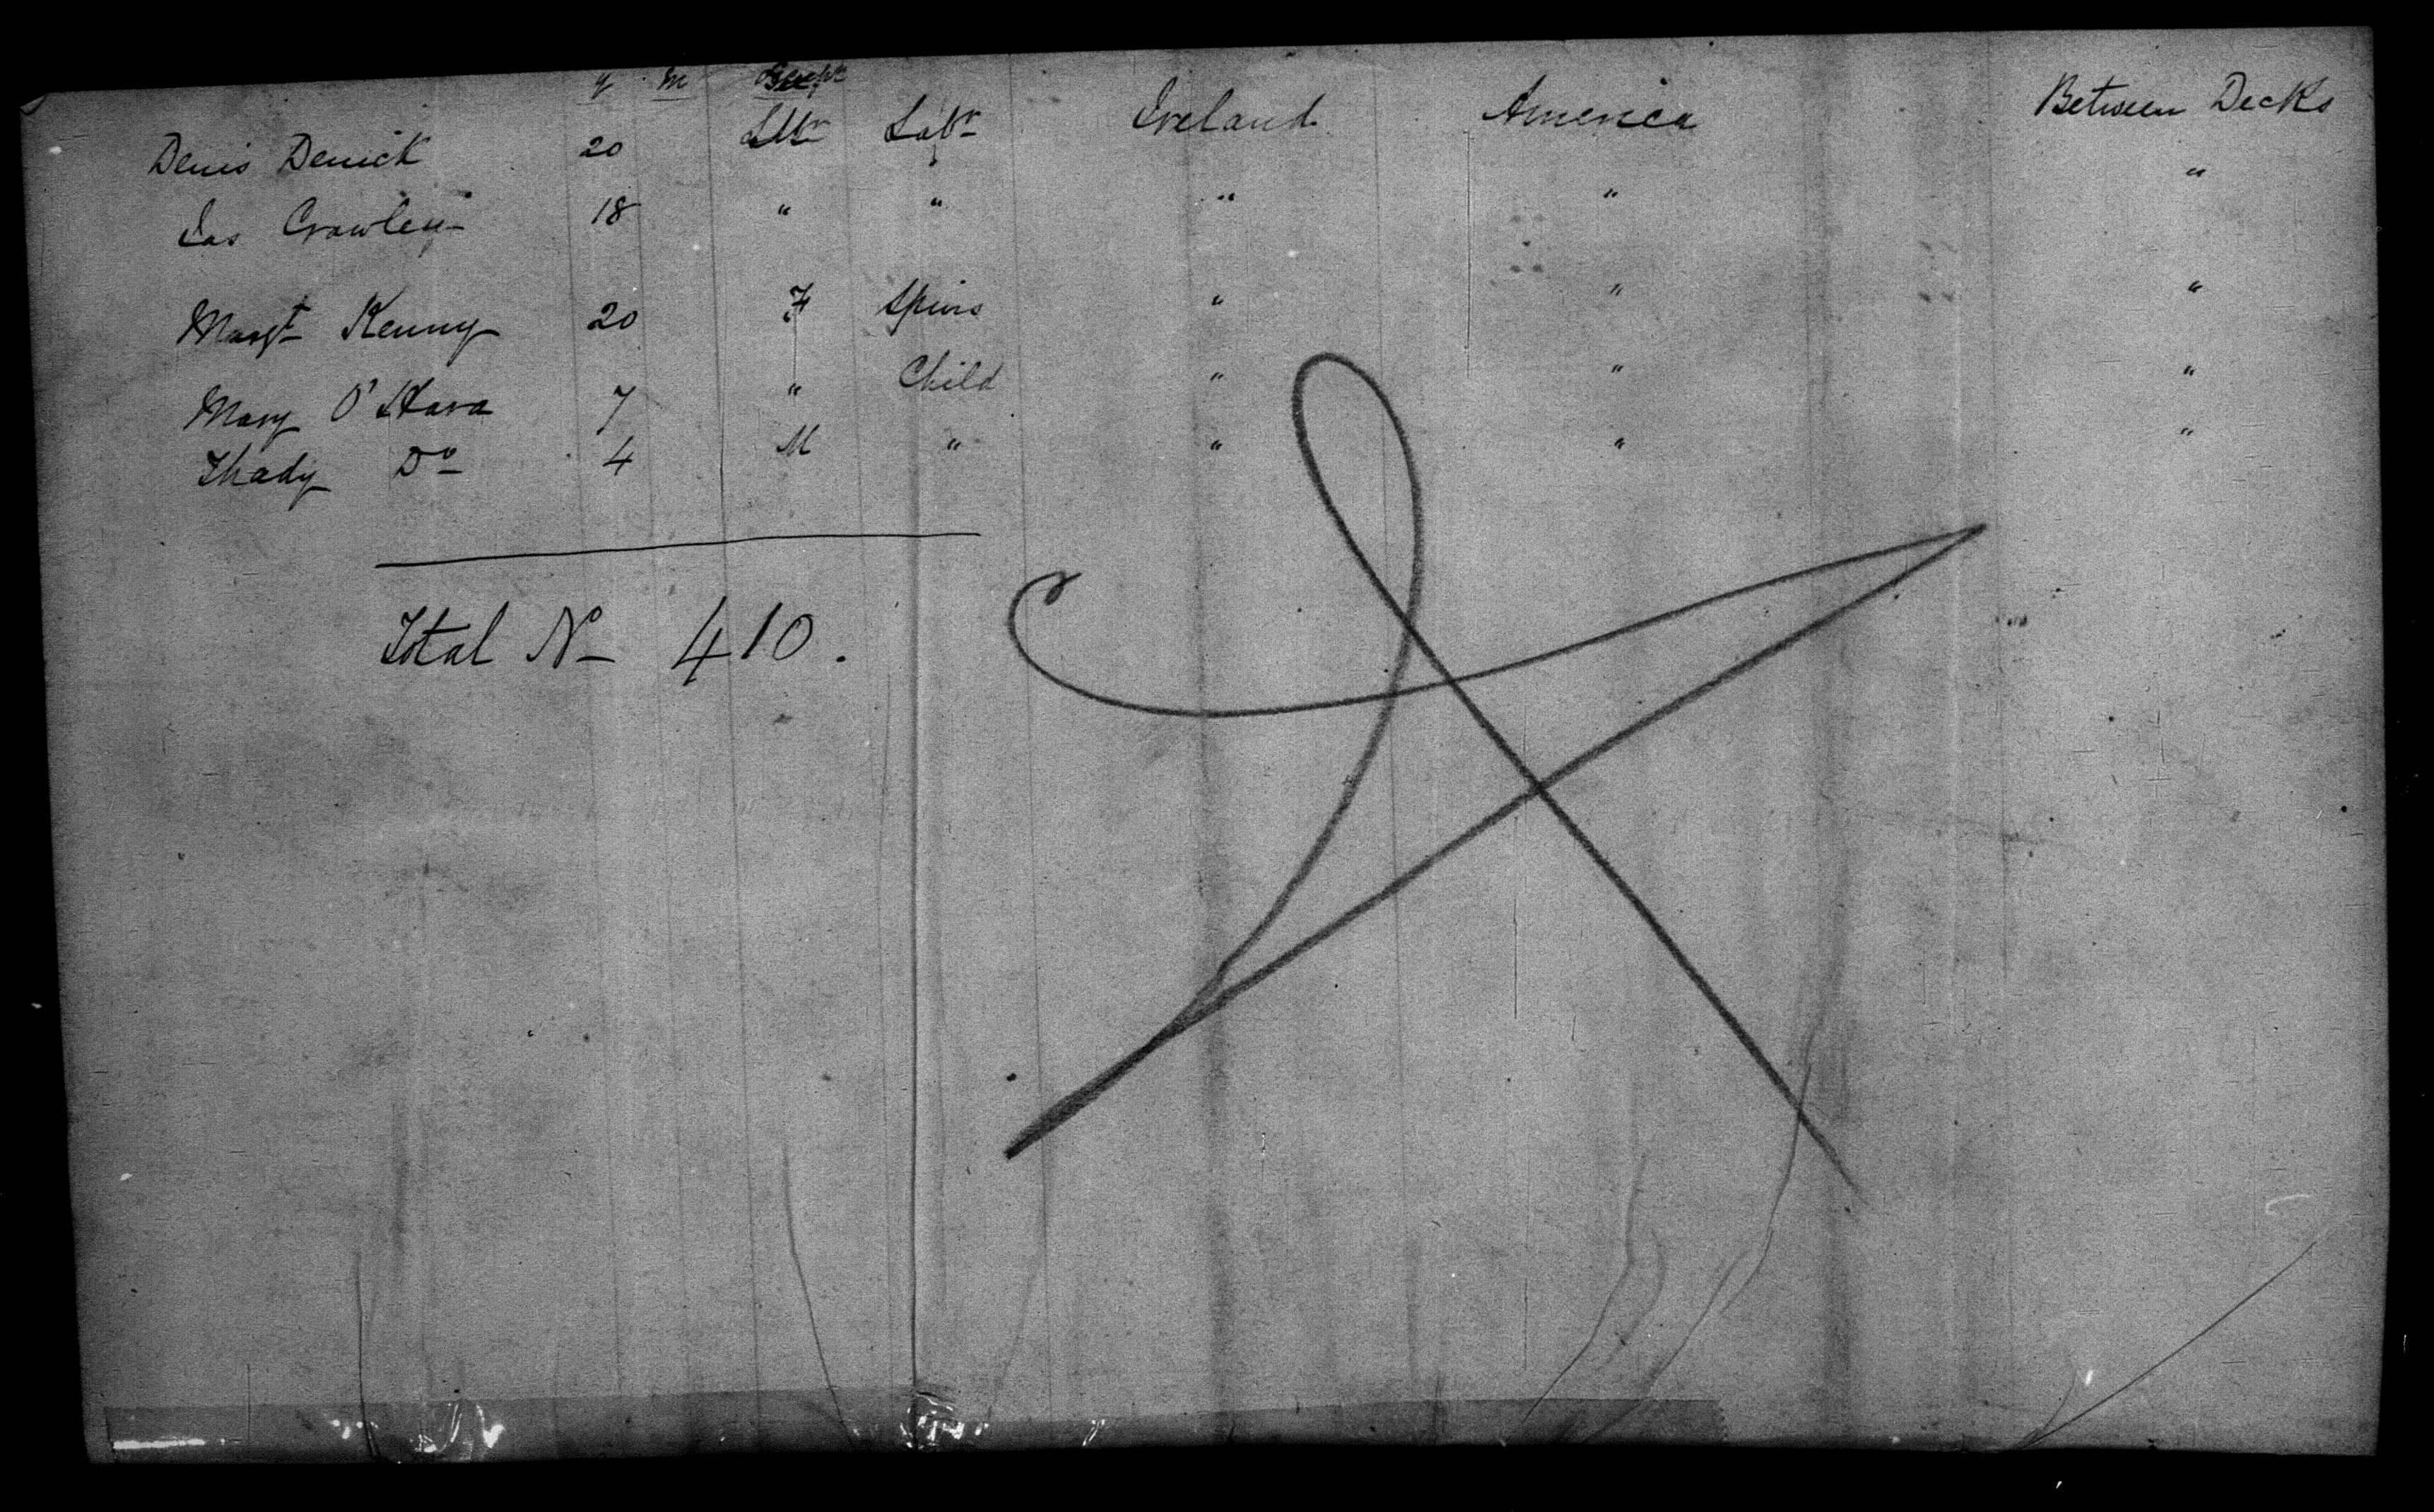 y m
Denis Denick 20 Labr Ireland America Between Decks
Jas Crowley 18 " " " " "
Margt Kenny 20 F Spins " " "
Mary O'Hara 7 " Child " " "
Thady Do 4 M " " " "
Total No 410.